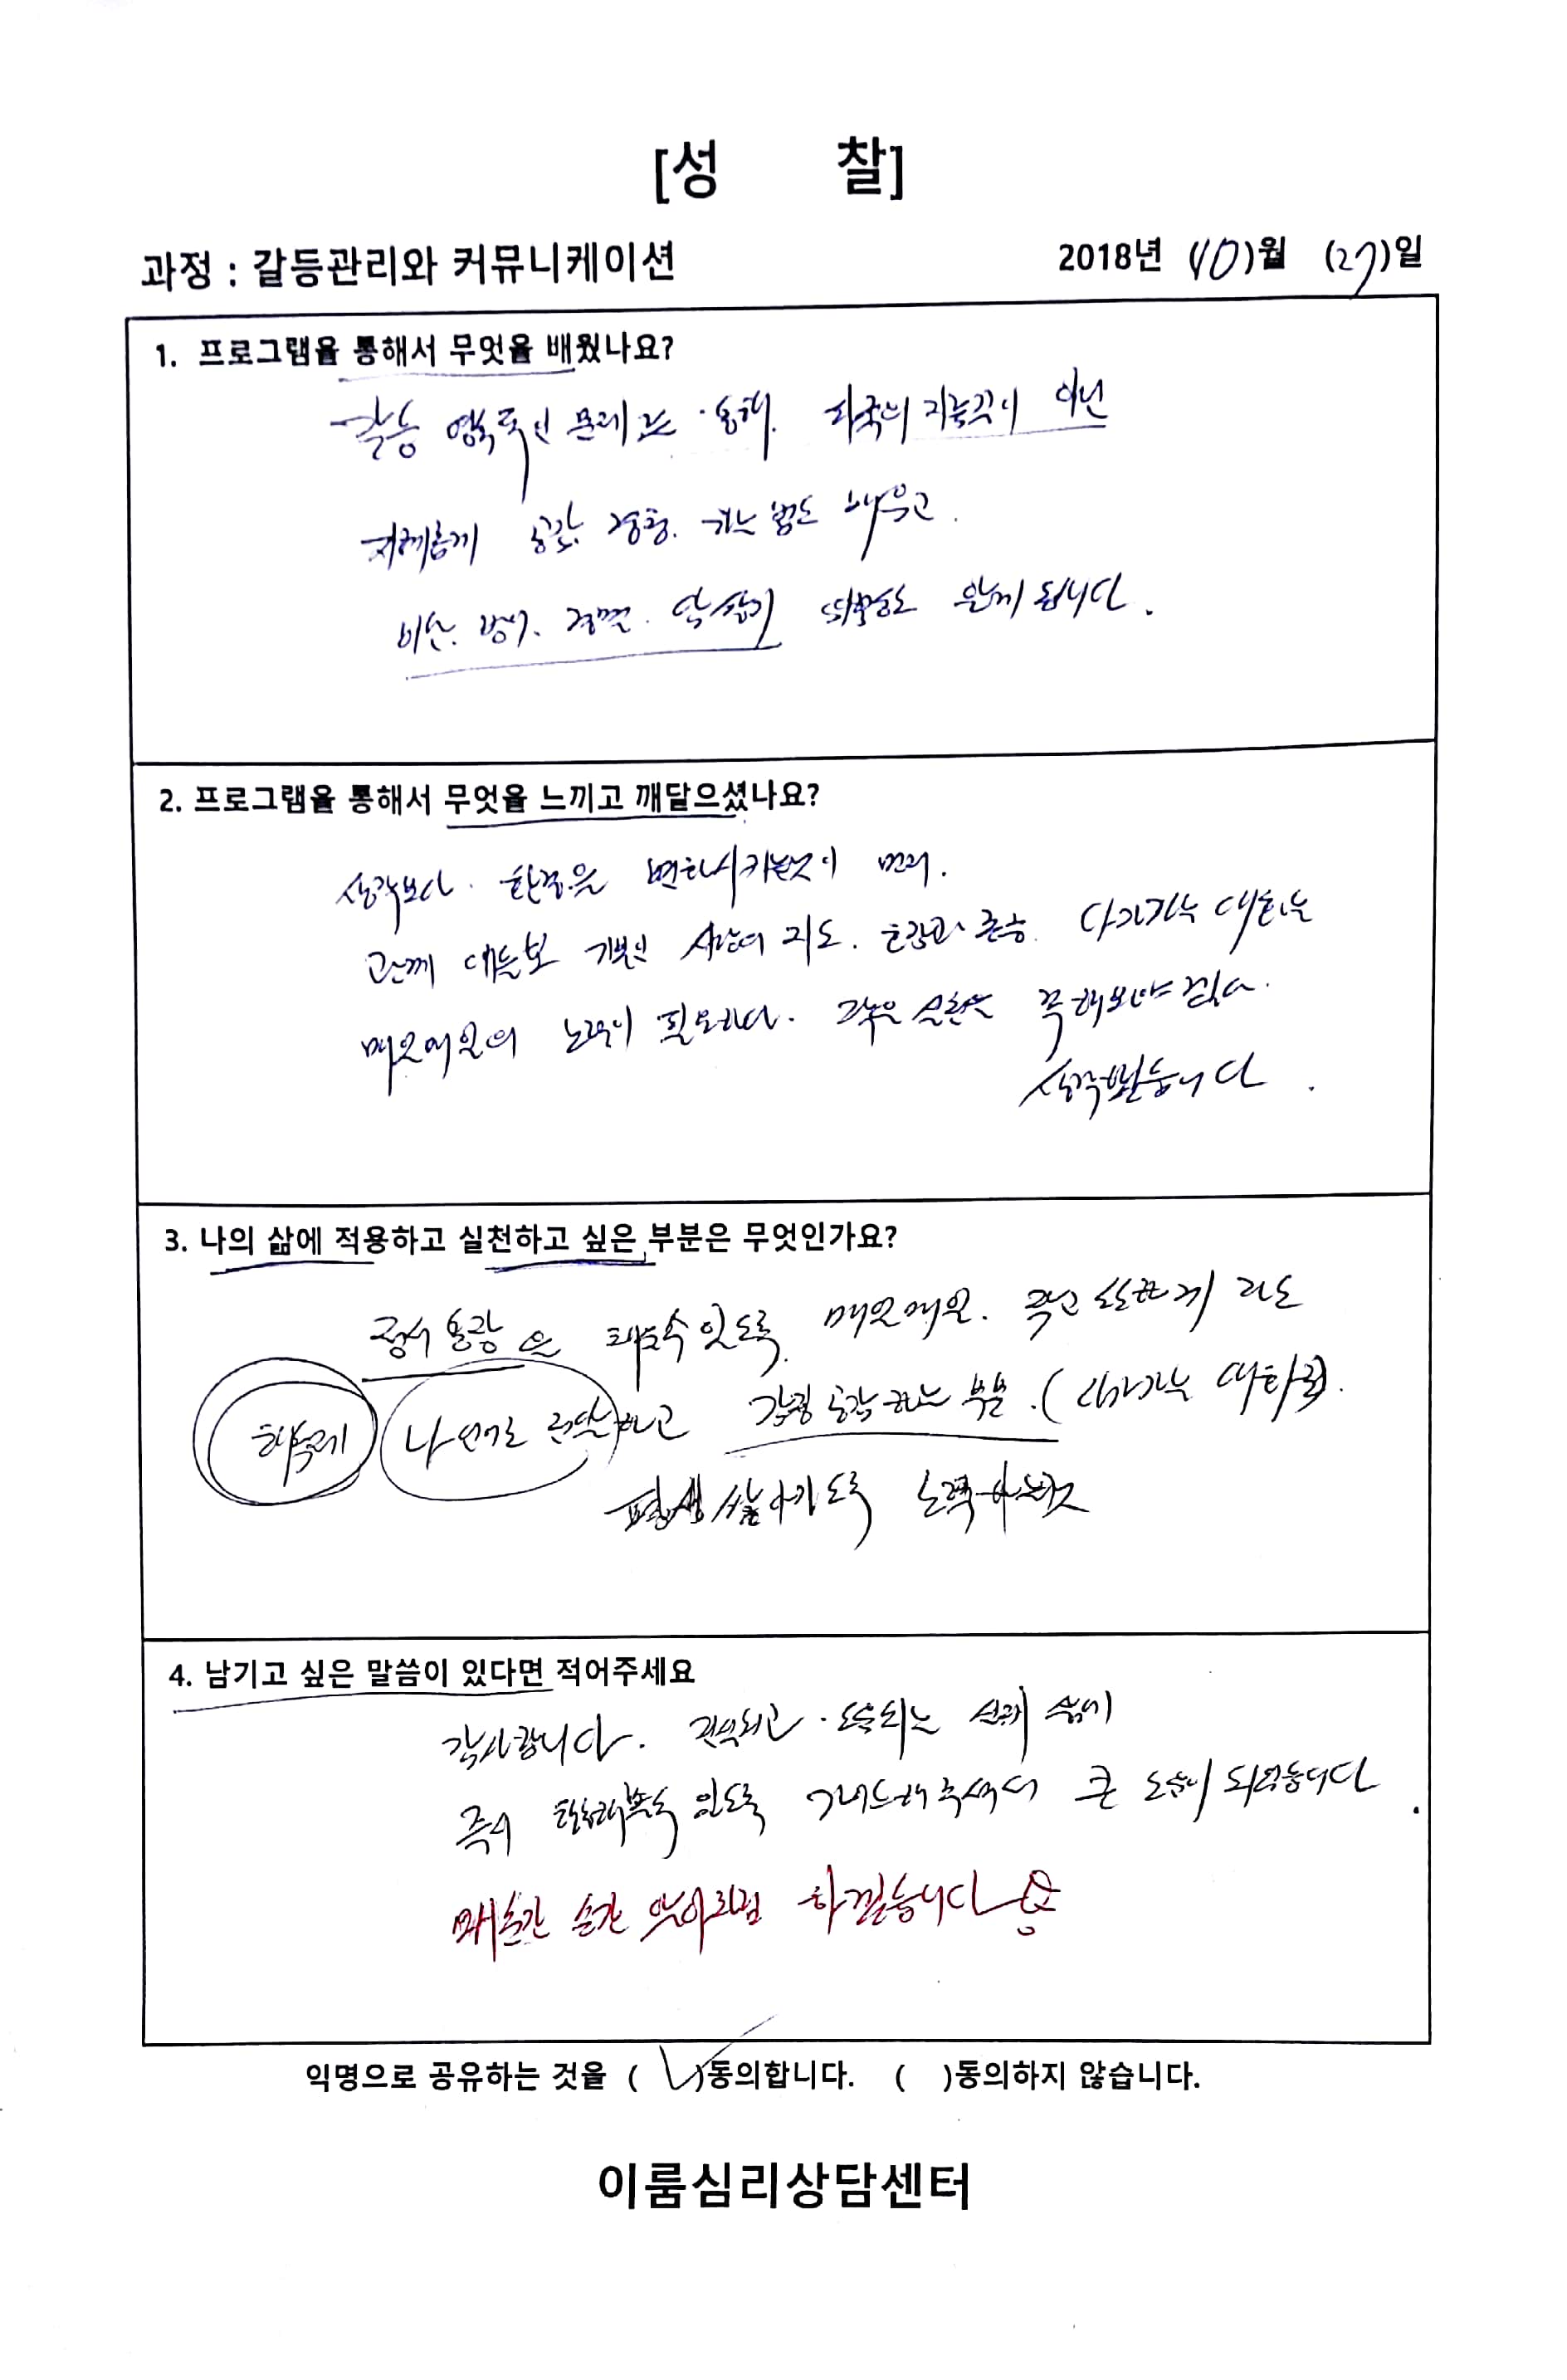 [성 찰]
과정 : 갈등관리와 커뮤니케이션 2018년 (10)월 (27)일
1. 프로그램을 통해서 무엇을 배웠나요?
갈등 영속적인 문제 통해. 파국의 지능곡이 아닌
지혜롭게 공감 경청. 하는 법도 배우고.
비난. 방어. 경멸. 담쌓기 알게 됩니다.
2. 프로그램을 통해서 무엇을 느끼고 깨달으셨나요?
생각보다. 환경을 변화시키는것이 먼저.
관계 대들보 기본인 사랑의 지도. 호감과 존중. 다가가는 대화는
매일매일의 노력이 필요하다. 작은 실천은 꼭 해보아야 겠다.
생각했습니다.
3. 나의 삶에 적용하고 실천하고 싶은 부분은 무엇인가요?
정서 통장을 채울수 있도록. 매일매일. 작고 소소하게 라도
행복하게 나 언어로 전달하고 감정 공감 하는 부분. (다가가는 대화로).
평생 살아가도록 노력하는것
4. 남기고 싶은 말씀이 있다면 적어주세요
감사합니다. 삶에
즉시 있도록 가이드해 주셔서 큰 도움이 되었습니다.
매순간 순간 하겠습니다
익명으로 공유하는 것을 ( ✓ )동의합니다. ( )동의하지 않습니다.
이룸심리상담센터